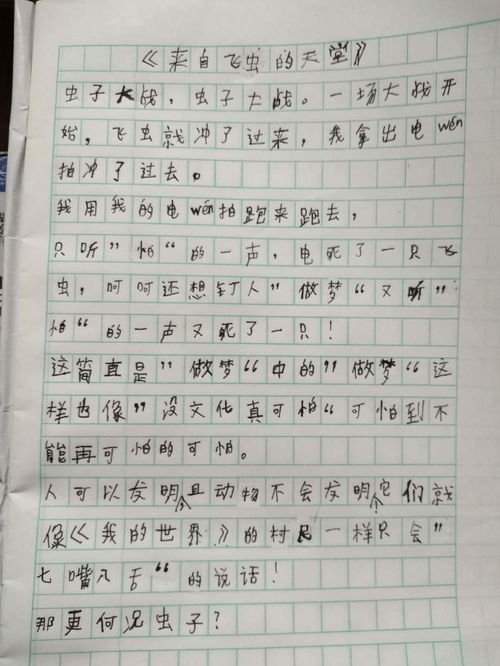 《来自飞虫的天堂》
虫子大战，虫子大战。一场大战开
始，飞虫就冲了过来，我拿出电wén
拍冲了过去。
我用我的电wén拍跑来跑去，
只听”怕“的一声，电死了一只飞
虫，呵呵还想钉人”做梦“又听”
怕“的一声又死了一只！
这简直是”做梦“中的”做梦“这
样也像”没文化真可怕“可怕到不
能再可怕的可怕。
人可以发明但动物不会发明它们就
像《我的世界》的村民一样只会”
七嘴八舌“的说话！
那更何况虫子？